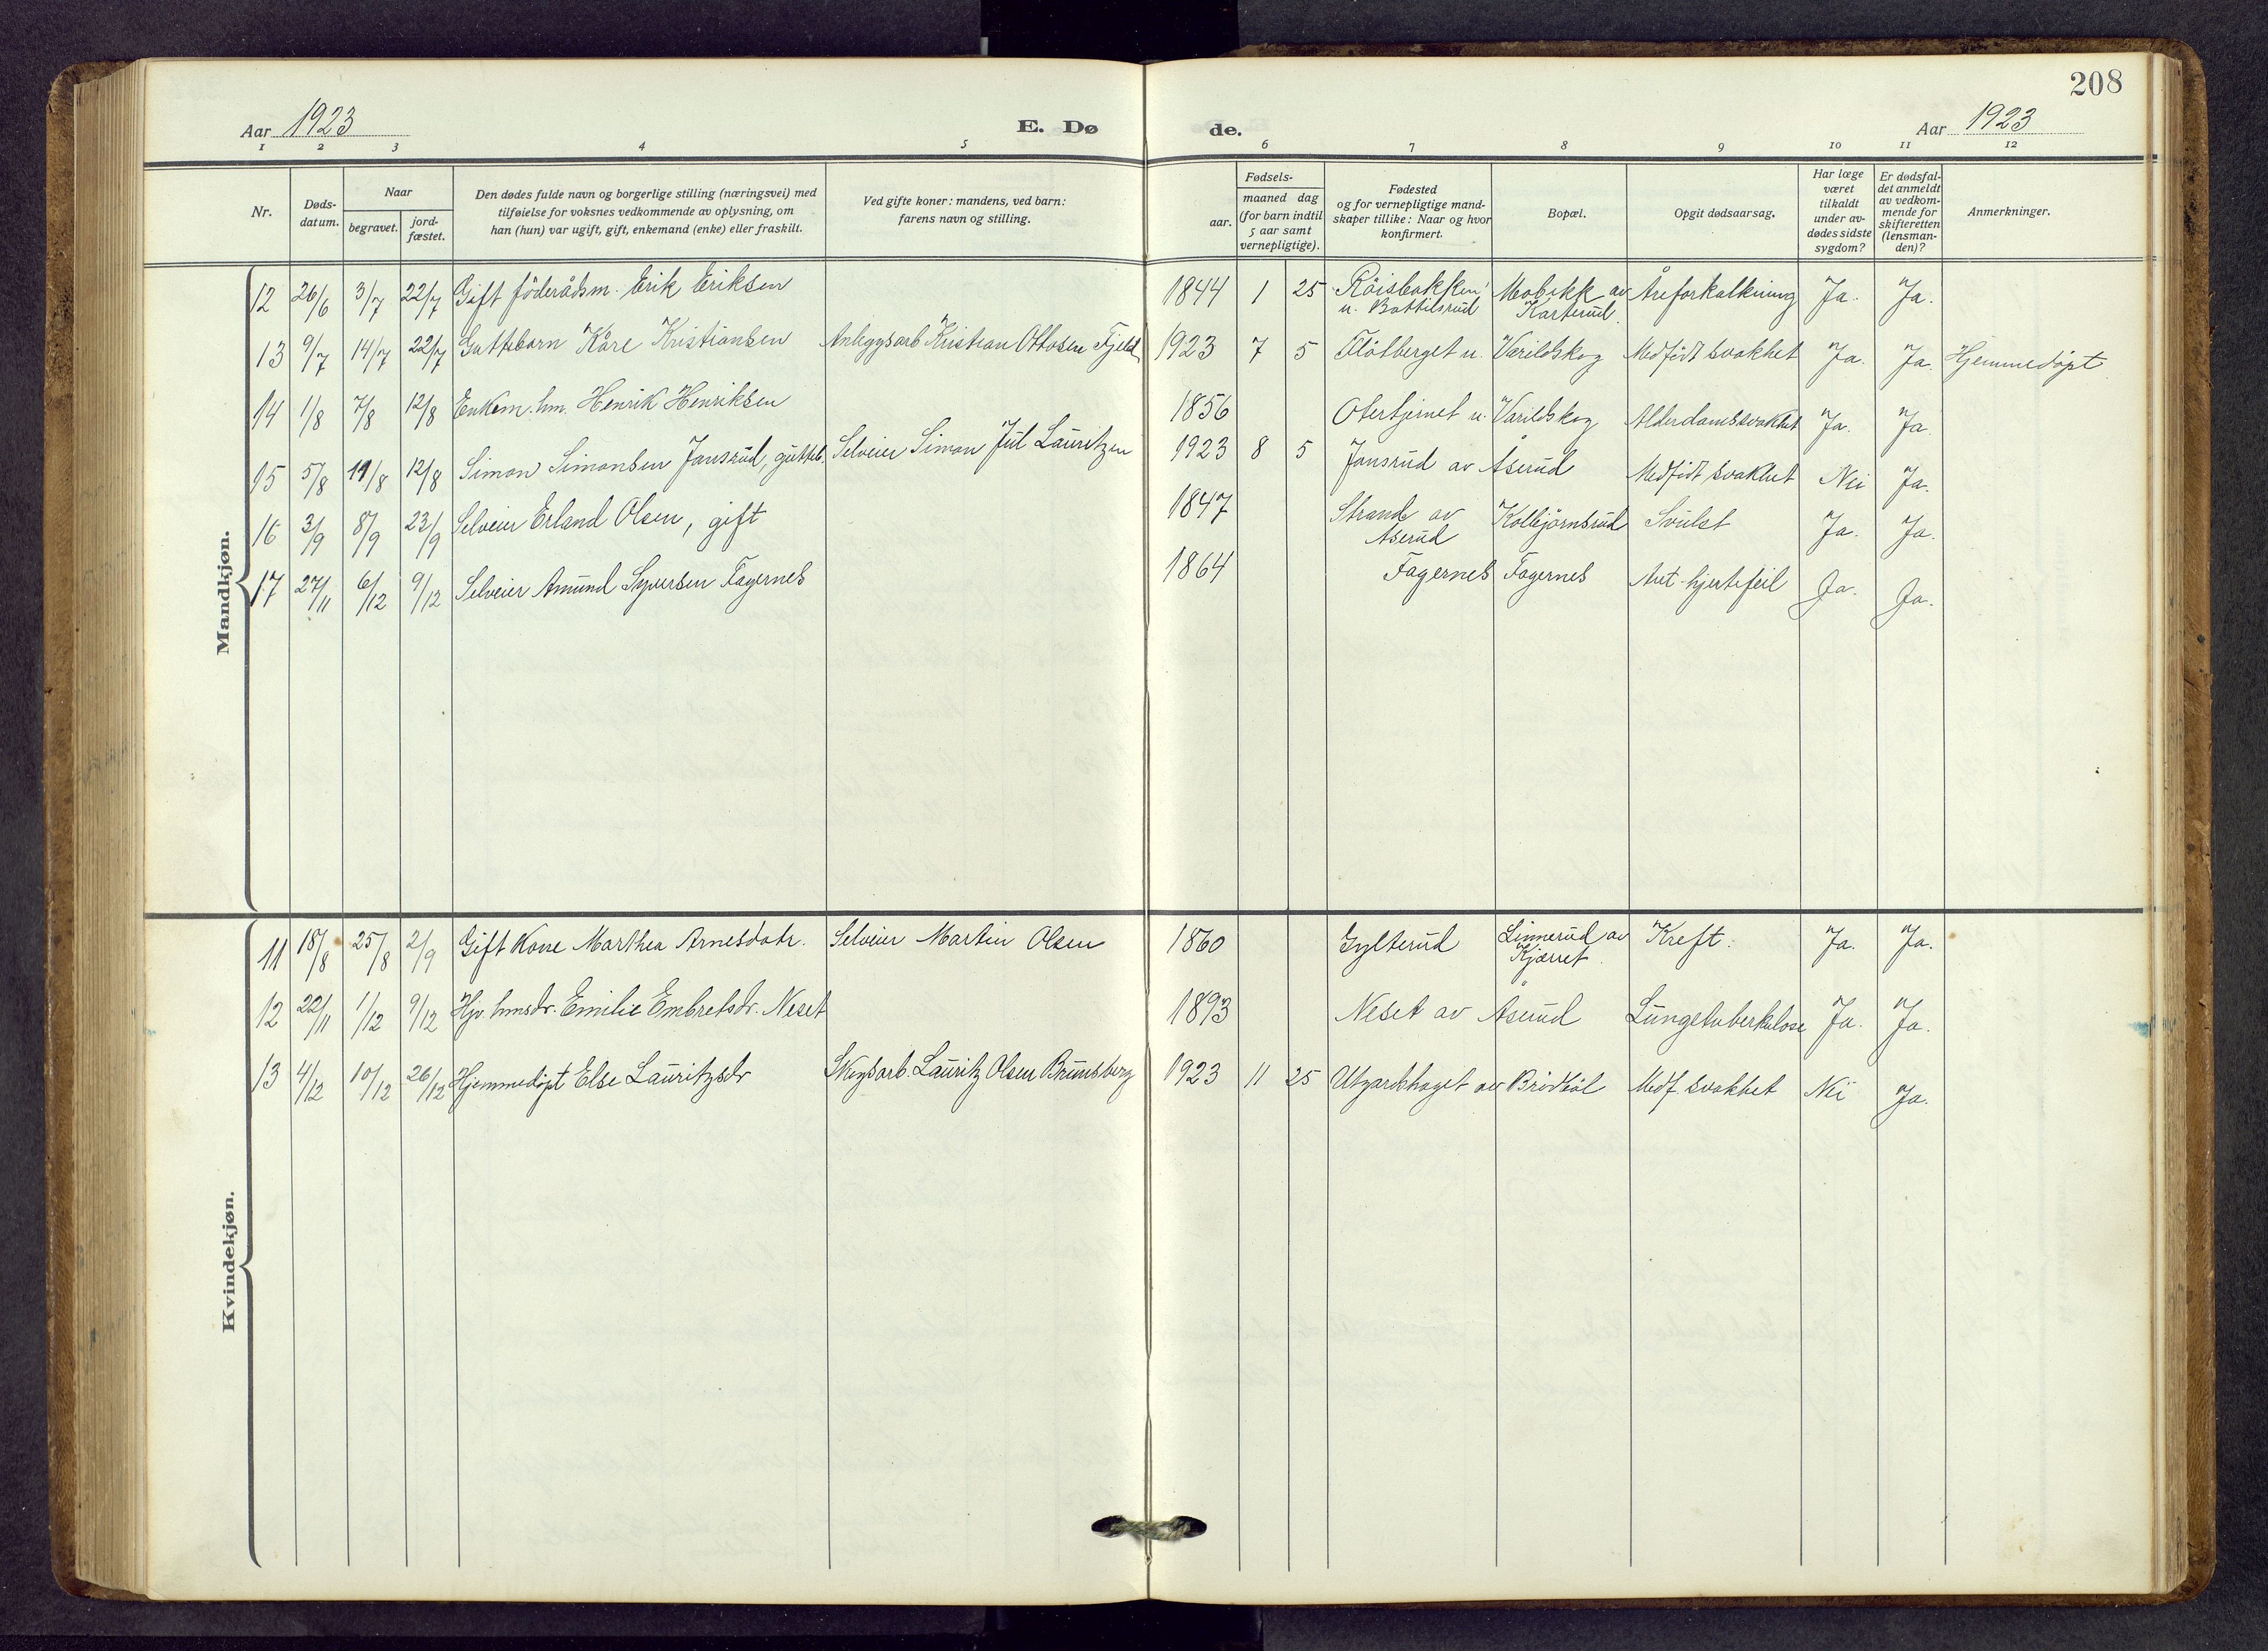 208
Aar 1923 E. Dø de. Aar 1923
1 2 3 4 5 6 7 8 9 10 11 12
Nr.
Døds-
datum.
Naar
begravet.
jord-
fæstet.
Den dødes fulde navn og borgerlige stilling (næringsvei) med
tilføielse for voksnes vedkommende av oplysning, om
han (hun) var ugift, gift, enkemand (enke) eller fraskilt.
Ved gifte koner: mandens, ved barn:
farens navn og stilling.
Fødsels-
aar.
maaned dag
(for barn indtil
5 aar samt
vernepligtige).
Fødested
og for vernepligtige mand-
skaper tillike: Naar og hvor
konfirmert.
Bopæl.
Opgit dødsaarsag.
Har læge
været
tilkaldt
under av-
dødes sidste
sygdom?
Er dødsfal-
det anmeldt
av vedkom-
mende for
skifteretten
(lensman-
den)?
Anmerkninger.
Mandkjøn.
12 26/6 3/7 22/7 Gift föderådsm. Erik Eriksen 1844 1 25 Röisbakken u. Bottilsrud Mobekk av Karterud Åreforkalkning Ja. Ja.
13 9/7 14/7 22/7 Guttebarn Kåre Kristiansen Anleggsarb Kristian Ottosen Fjeld 1923 7 5 Flötberget u. Varildskog Medfödt svakhet Ja. Ja. Hjemmedöpt
14 1/8 7/8 12/8 Enkem. hm. Henrik Henriksen 1856 Otertjernet u. Varildskog Alderdomssvakhet Ja. Ja.
15 5/8 11/8 12/8 Simon Simonsen Jonsrud, gutteb. Selveier Simon Jul Lauritzen 1923 8 5 Jonsrud av Åserud Medfödt svakhet Nei Ja.
16 3/9 8/9 23/9 Selveier Erland Olsen, gift 1847 Strand av Åserud Kolbjörnsrud Svulst Ja. Ja.
17 27/11 6/12 9/12 Selveier Amund Syversen Fagernes 1864 Fagernes Fagernes Aut. hjertefeil Ja. Ja.
Kvindekjøn.
11 18/8 25/8 2/9 Gift Kone Marthea Arnesdatr. Selveier Martin Olsen 1860 Gylterud Linnerud av Kjærret. Kreft. Ja. Ja.
12 22/11 1/12 9/12 Hjv. hmsdr. Emilie Embretsdr. Neset 1893 Neset av Åserud Lungetuberkulose Ja. Ja.
13 4/12 10/12 26/12 Hjemmedöpt Else Lauritzsdr Skogsarb. Lauritz Olsen Brunsberg 1923 11 25 Utgardshaget av Brödböl Medf. svakhet Nei Ja.